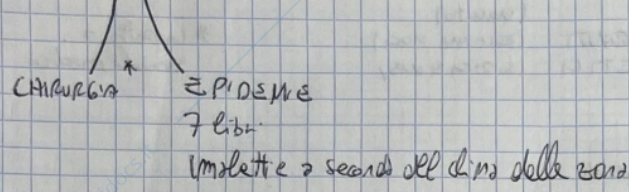 CHIRURGIA * EPIDEMIE
7 libri
(malattie a seconda del clima della zona